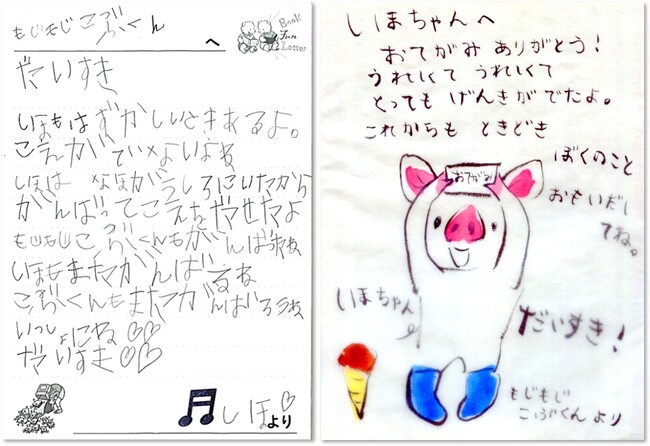 もじもじこぶくん
へ
Book
Fan
Letter
だいすき
しほもはずかしいときあるよ。
こえがでないよね
しほは
がうしろにいたから
がんばってこえをだせたよ
もじもじこぶくんもがんばれね
しほもまたがんばるね
こぶくんもまたがんばろうね
いっしょにね♡♡
だいすき♡♡
しほ♡より
しほちゃんへ
おてがみ ありがとう!
うれしくて うれしくて
とっても げんきが でたよ。
これからも ときどき
ぼくのこと
おもいだし
てね。
おてがみ
しほちゃん
だいすき!
もじもじ
こぶくん より